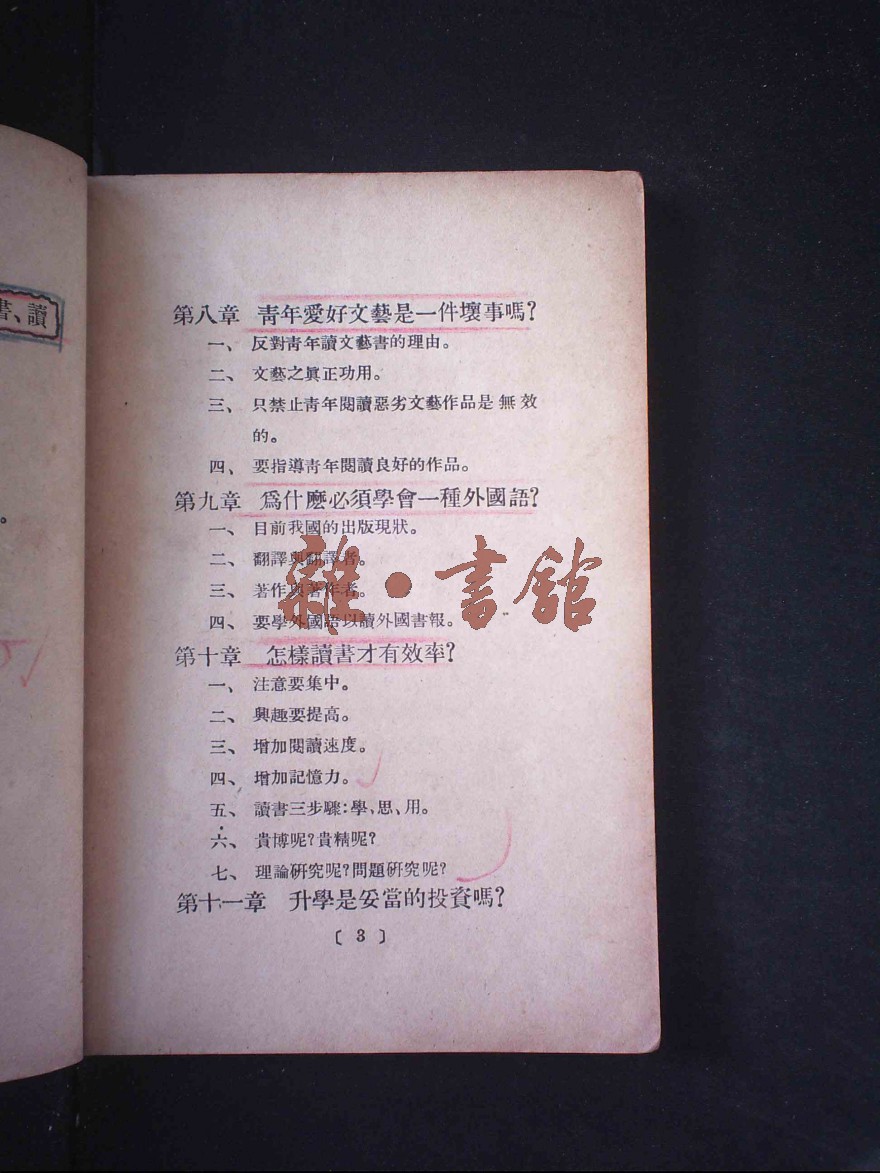 書、讀
。
第八章 靑年愛好文藝是一件壞事嗎?
一、 反對靑年讀文藝書的理由。
二、 文藝之眞正功用。
三、 只禁止靑年閱讀惡劣文藝作品是無效
的。
四、 要指導靑年閱讀良好的作品。
第九章 爲什麽必須學會一種外國語?
一、 目前我國的出版現狀。
二、 翻譯與翻譯者。
三、 著作與著作者。
四、 要學外國語以讀外國書報。
雜·書館
第十章 怎樣讀書才有效率?
一、 注意要集中。
二、 興趣要提高。
三、 增加閱讀速度。
四、 增加記憶力。
五、 讀書三步驟:學、思、用。
六、 貴博呢?貴精呢?
七、 理論硏究呢?問題硏究呢?
第十一章 升學是妥當的投資嗎?
〔 3 〕